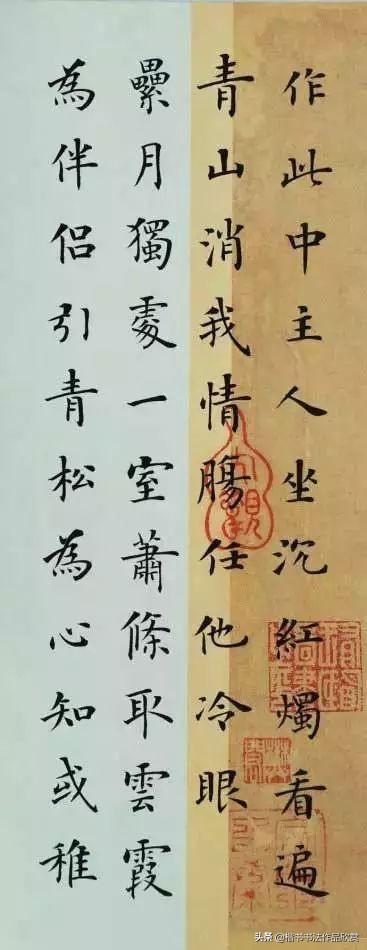 作此中主人坐沉紅燭看遍
青山消我情腸任他冷眼
纍月獨處一室蕭條取雲霞
為伴侶引青松為心知或稚
头条 @楷书书法作品欣赏